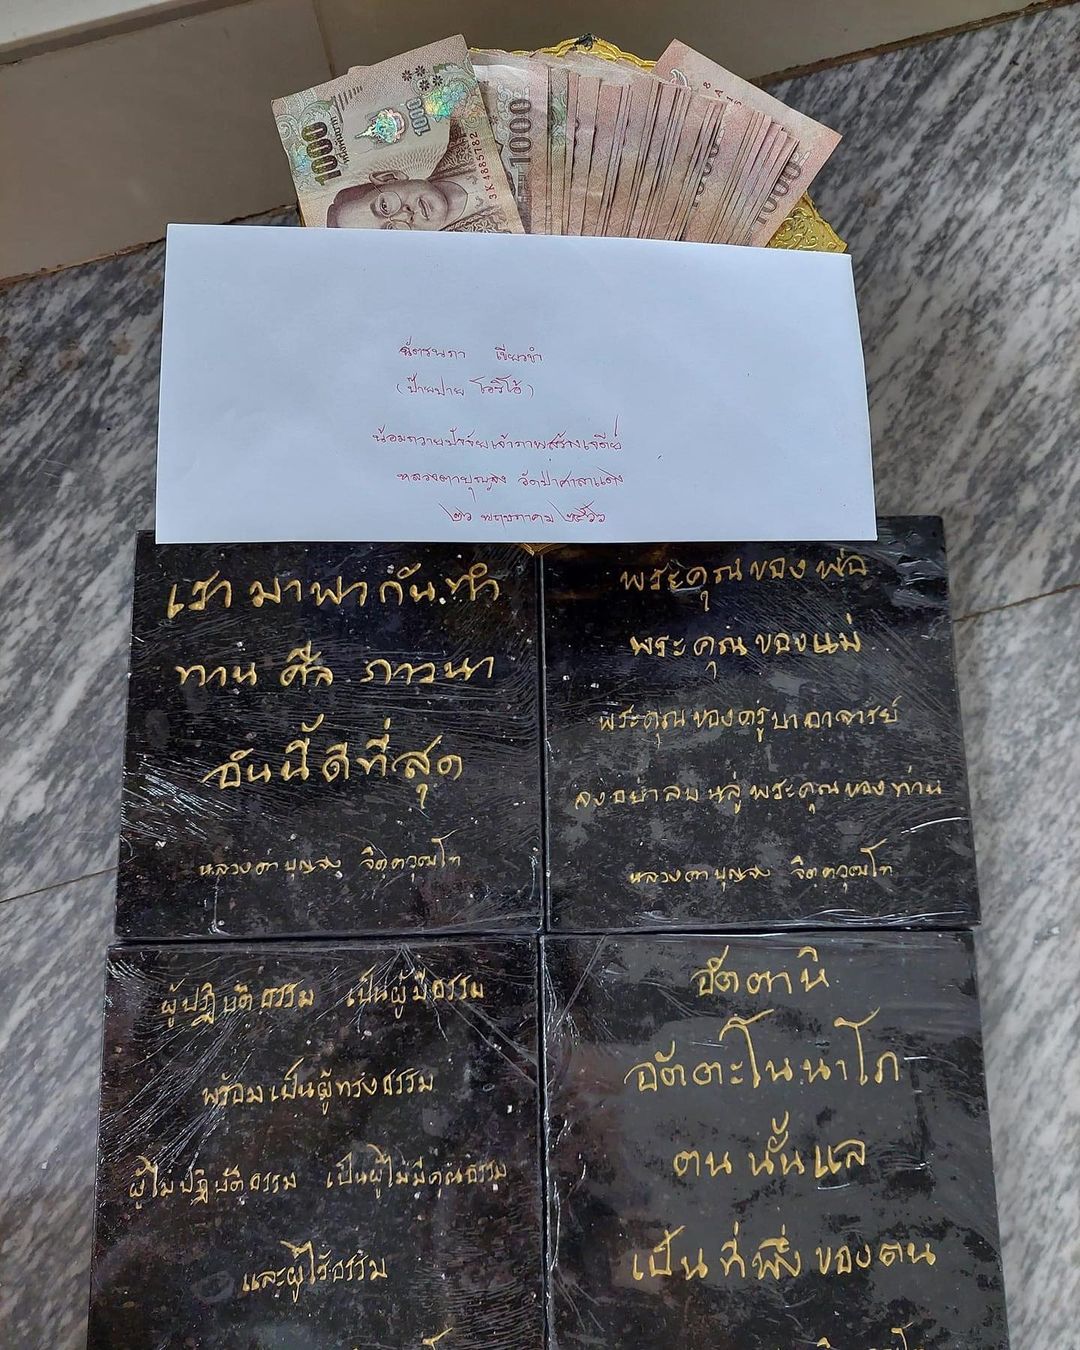 1000
1000
3K4885782
1000
1000
ฉัตรนภา เขียวขำ
(ป้ายปาย โอริโอ้)
น้อมถวายปัจจัยเจ้าภาพสร้างเจดีย์
หลวงตาบุญจง วัดป่าศาลาแดง
๒๖ พฤษภาคม ๒๕๖๖
เรา มา พา กัน ทำ
ทาน ศีล ภาวนา
อันนี้ดีที่สุด
หลวงตา บุญจง จิตตวุฒโท
พระคุณของพ่อ
พระคุณของแม่
พระคุณของครูบาอาจารย์
จงอย่าลบหลู่พระคุณของท่าน
หลวงตา บุญจง จิตตวุฒโท
ผู้ปฏิบัติธรรม เป็นผู้มีธรรม
พร้อมเป็นผู้ทรงธรรม
ผู้ไม่ปฏิบัติธรรม เป็นผู้ไม่มีคุณธรรม
และผู้ไร้ธรรม
อัตตาหิ
อัตตะโน นาโถ
ตน นั้นแล
เป็น ที่พึ่ง ของตน